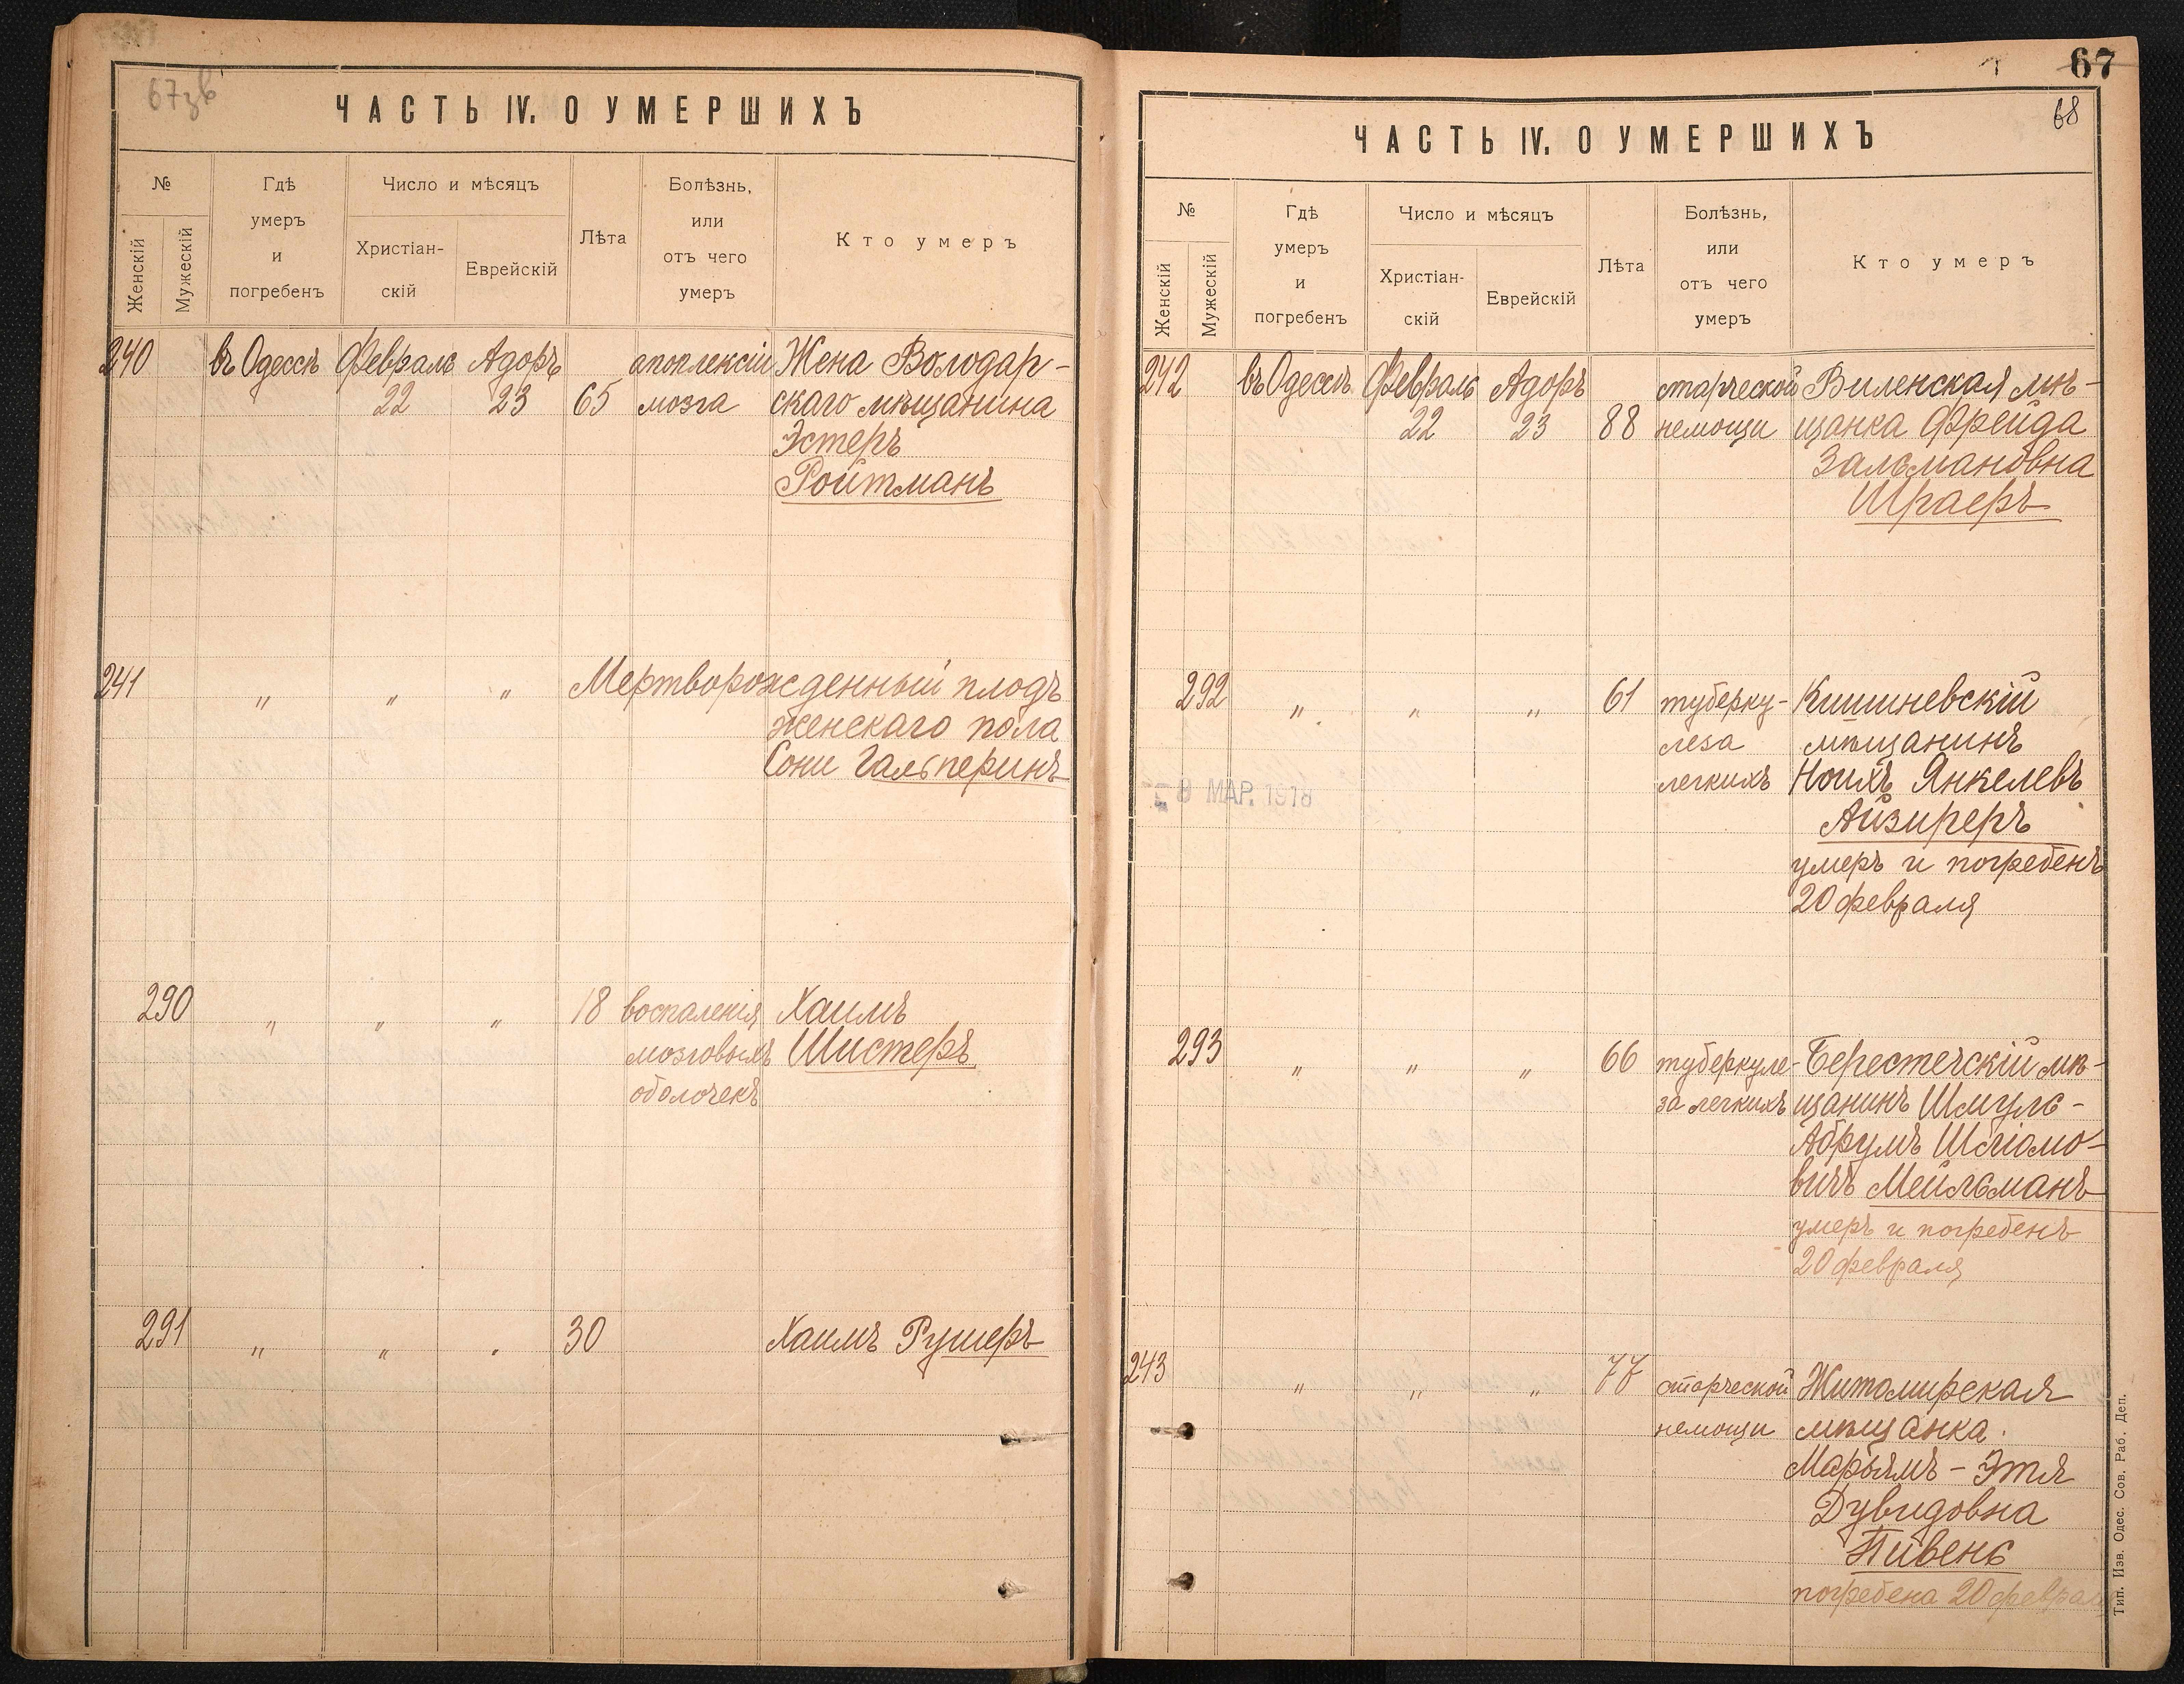 67зв
ЧАСТЬ IV. О УМЕРШИХЪ
№
Женскій
Мужескій
Гдѣ
умеръ
и
погребенъ
Число и мѣсяцъ
Христіан-
скій
Еврейскій
Лѣта
Болѣзнь,
или
отъ чего
умеръ
Кто умеръ
240 въ Одессѣ Февраль Адоръ апоплексіи Жена Володар-
22 23 65 мозга скаго мѣщанина
Эстеръ
Ройтманъ
241 " " " Мертворожденный плодъ
женскаго пола
Сони Гальперинъ
290 " " " 18 воспаленія Хаимъ
мозговыхъ Шистеръ
оболочекъ
291 " " " 30 Хаимъ Рушеръ
67
68
ЧАСТЬ IV. О УМЕРШИХЪ
№
Женскій
Мужескій
Гдѣ
умеръ
и
погребенъ
Число и мѣсяцъ
Христіан-
скій
Еврейскій
Лѣта
Болѣзнь,
или
отъ чего
умеръ
Кто умеръ
242 въ Одессѣ Февраль Адоръ старческой Виленская мѣ-
22 23 88 немощи щанка Фрейда
Зальмановна
Шраеръ
292 " " " 61 туберку- Кишиневскій
леза мѣщанинъ
легкихъ Ноихъ Янкелевъ
8 МАР. 1918
Айзиреръ
умеръ и погребенъ
20 февраля
293 " " " 66 туберкуле- Берестечскій мѣ-
за легкихъ щанинъ Шмуль-
Абрумъ Шліомо-
вичъ Мейльманъ
умеръ и погребенъ
20 февраля
243 " " " 77 старческой Житомирская
немощи мѣщанка
Марьямъ-Этя
Дувидовна
Пивень
погребена 20 февраля
Тип. Изв. Одес. Сов. Раб. Деп.